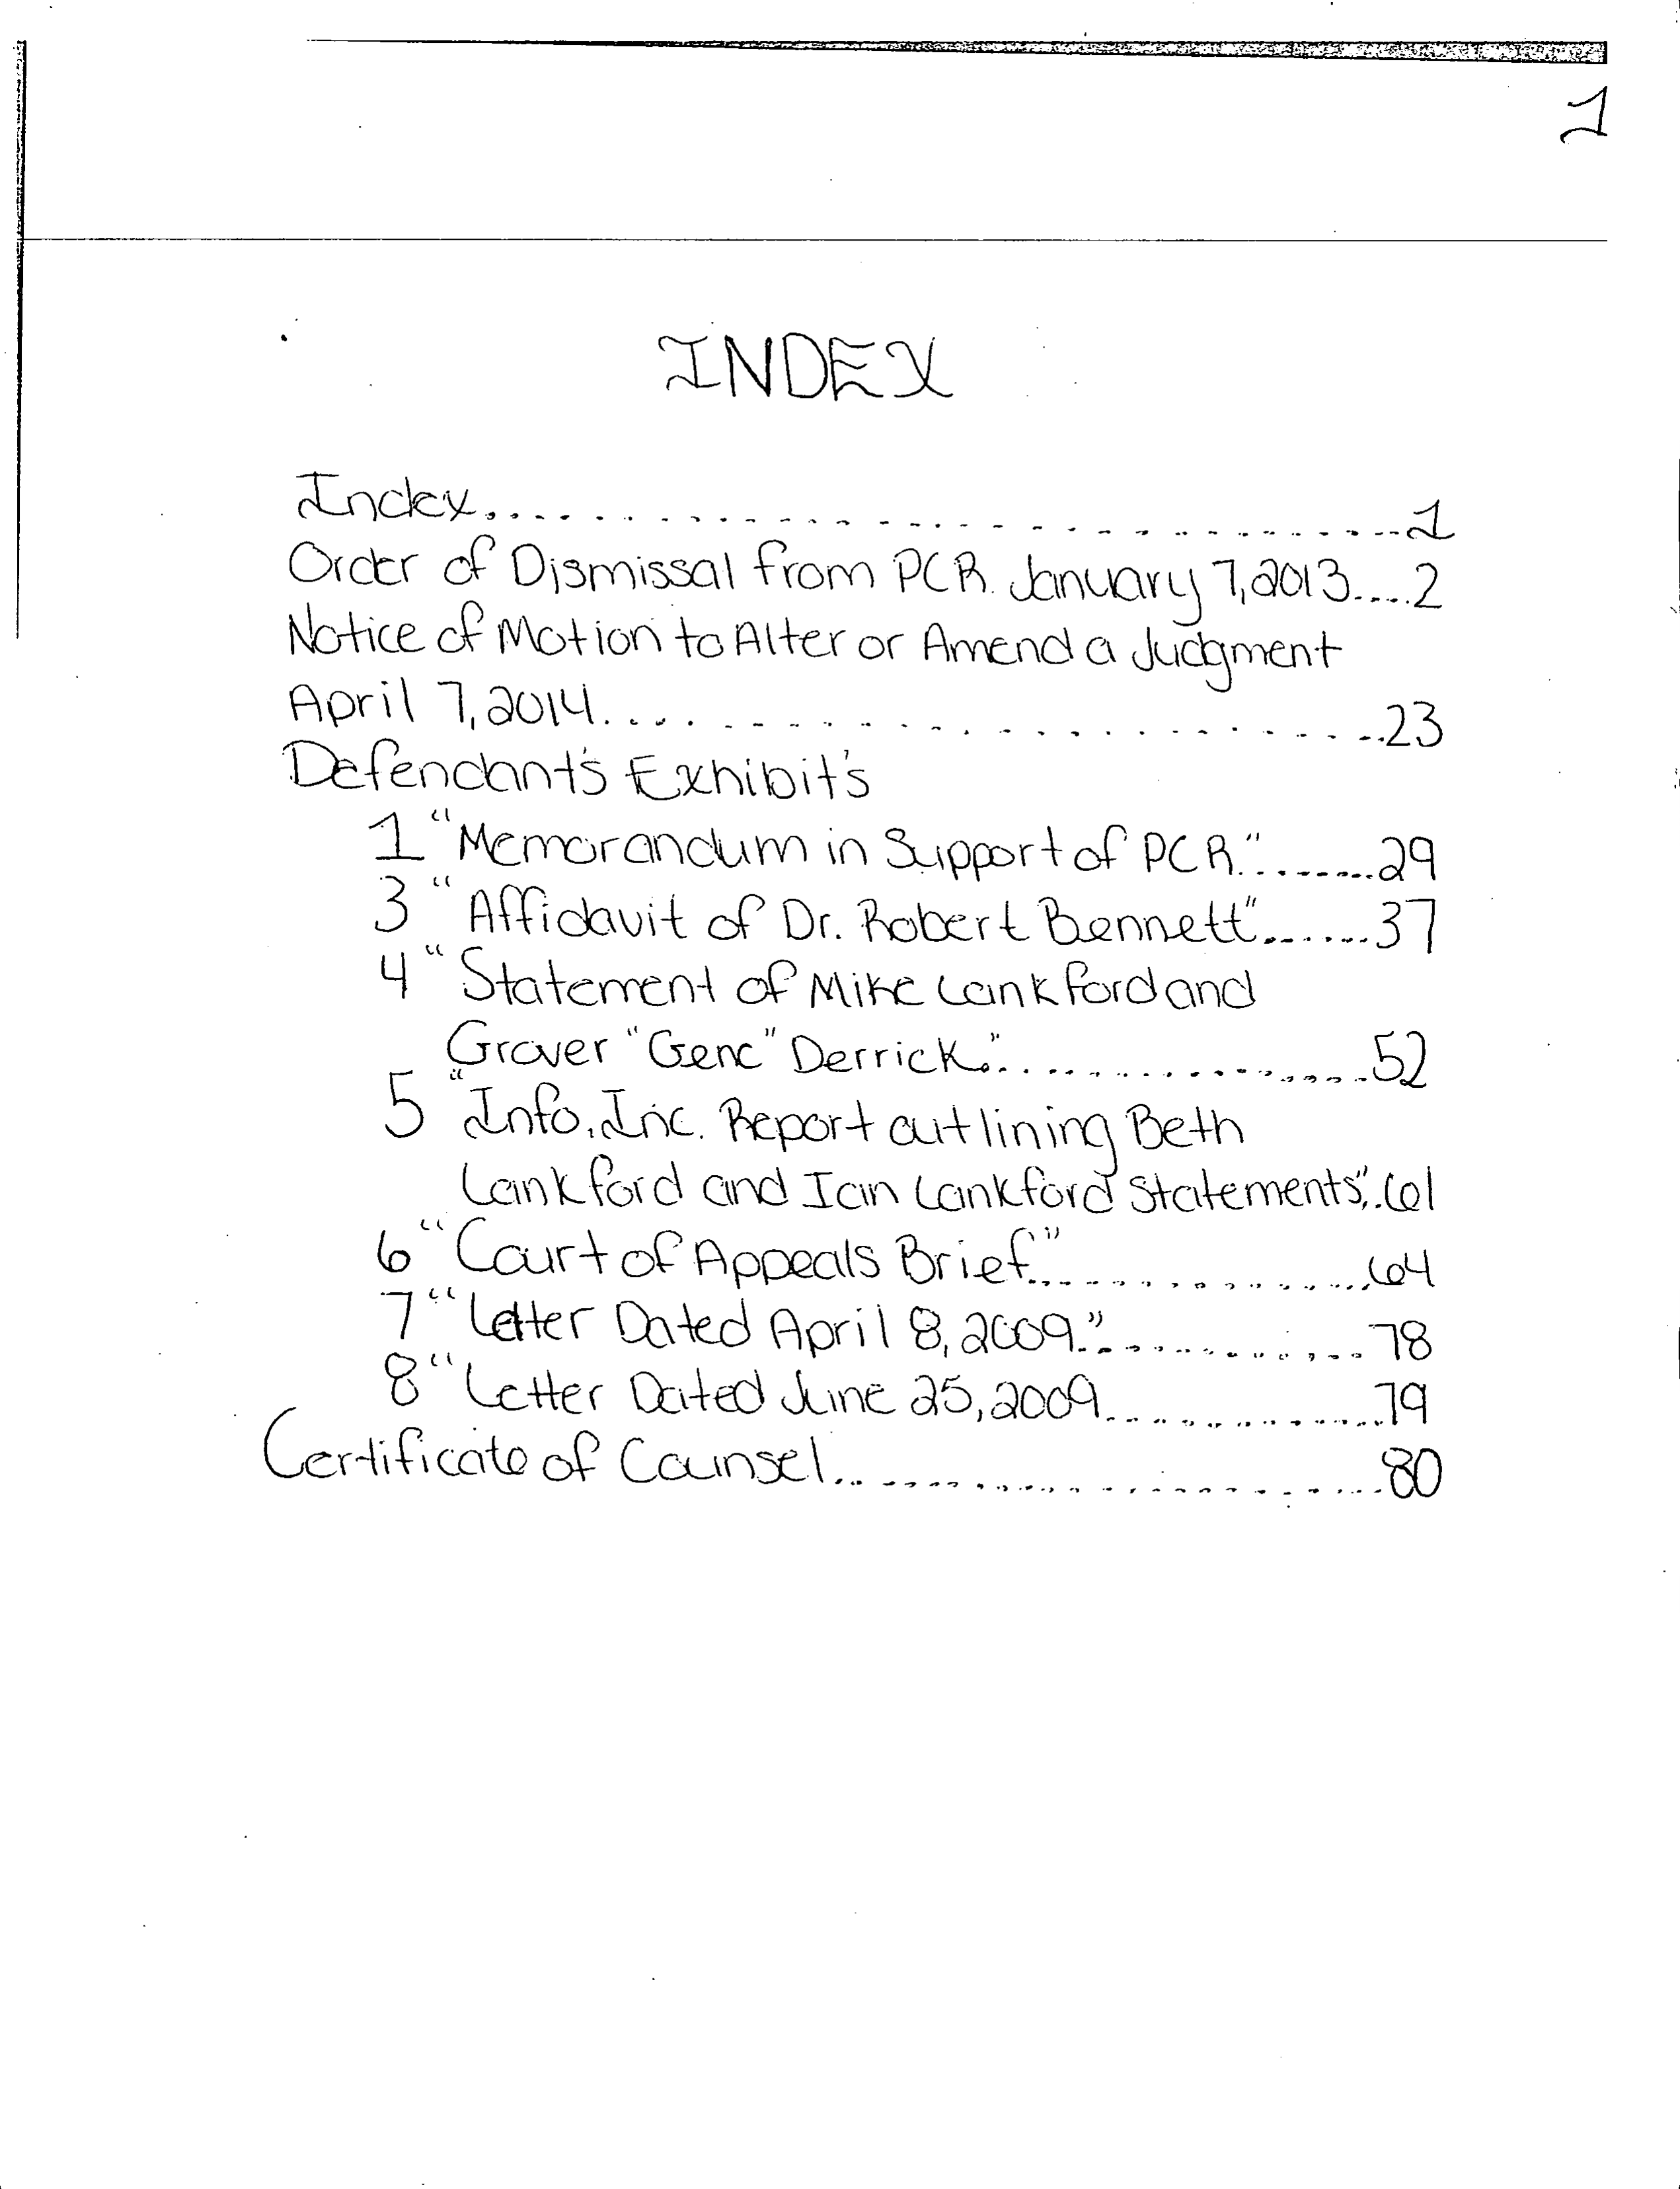 1
INDEX
Index..................................1
Order of Dismissal from PCR. January 7,2013.....2
Notice of Motion to Alter or Amend a Judgment
April 7,2014..........................23
Defendant's Exhibit's
1 "Memorandum in Support of PCR."..........29
3 "Affidavit of Dr. Robert Bennett"........37
4 "Statement of Mike Lankford and
Grover "Gene" Derrick."...................52
5 "Info. Inc. Report outlining Beth
Lankford and Ian Lankford Statements"..61
6 "Court of Appeals Brief"..................64
7 "Letter Dated April 8,2009."...............78
8 "Letter Dated June 25,2009.................79
Certificate of Counsel..........................80